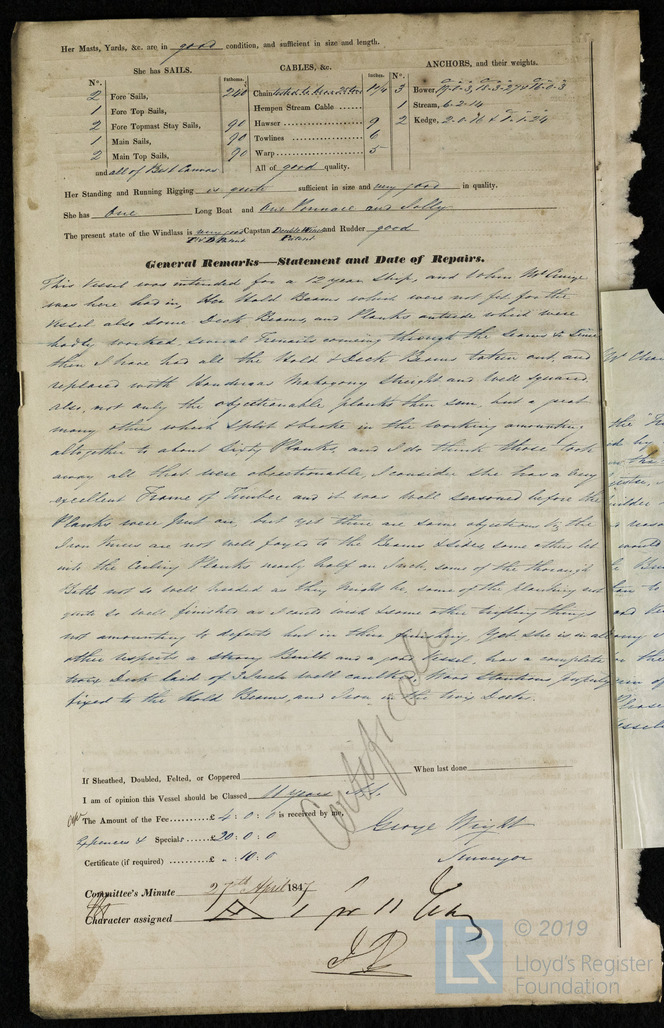 Her Masts, Yards, &c. are in good condition, and sufficient in size and length.
She has SAILS.
N°.
2 Fore Sails,
1 Fore Top Sails,
2 Fore Topmast Stay Sails,
1 Main Sails,
2 Main Top Sails,
and all of Best Canvas
CABLES, &c.
Fathoms.
Inches.
240 Chain
Hempen Stream Cable
90 Hawser 9
90 Towlines 6
90 Warp 5
All of good quality.
ANCHORS, and their weights.
N°.
3 Bower,
1 Stream, 6.2.14
2 Kedge,
Her Standing and Running Rigging is quite sufficient in size and very good in quality.
She has One Long Boat and One Pinnace and Jolly
The present state of the Windlass is very good Capstan Double Patent and Rudder good
General Remarks—Statement and Date of Repairs.
This Vessel was intended for a 12 year Ship, and when Mr
was here had in, the Hold Beams which were not fit for the
Vessel also some Deck Beams, and Planks outside which were
badly worked several Trenails coming through the seams & since
then I have had all the Hold & Deck Beams taken out, and
replaced with Honduras Mahogony straight and well squared
also, not only the objectionable planks then seen, but a great
many others which split & broke in the working amounting
altogether to about Sixty Planks, and I do think those took
away all that were objectionable, I consider she has a very
excellent Frame of Timber and it was well seasoned before the
Planks were put on, but yet there are some objections to, the
Iron Knees are not well fayed to the Beams & sides, some others let
into the Ceiling Planks nearly half an Inch, some of the through
Bolts not so well headed as they might be, some of the planking not
quite so well finished as I could wish & some other trifling things
not amounting to defects but in their finishing, Yet she is in all
other respects a strong Built and a good Vessel, has a complete
twix Deck laid of 3 Inch well caulked Wood Stantions properly
fixed to the Hold Beams, and Iron in the twix Decks.
Certificate
If Sheathed, Doubled, Felted, or Coppered When last done
I am of opinion this Vessel should be Classed 11 years A1.
The Amount of the Fee £4:0:0 is received by me,
Expences & Special £20:0:0
Certificate (if required) £ " :10:0
George Wright
Surveyor
Committee's Minute 27th April 1847
Character assigned A 1 for 11 Years
© 2019
LR
Lloyd's Register
Foundation